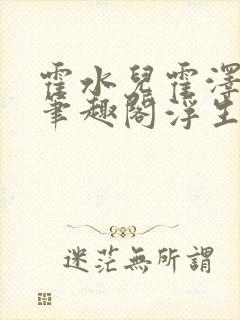 霍水兒霍澤
筆趣閣浮生
迷茫無所謂